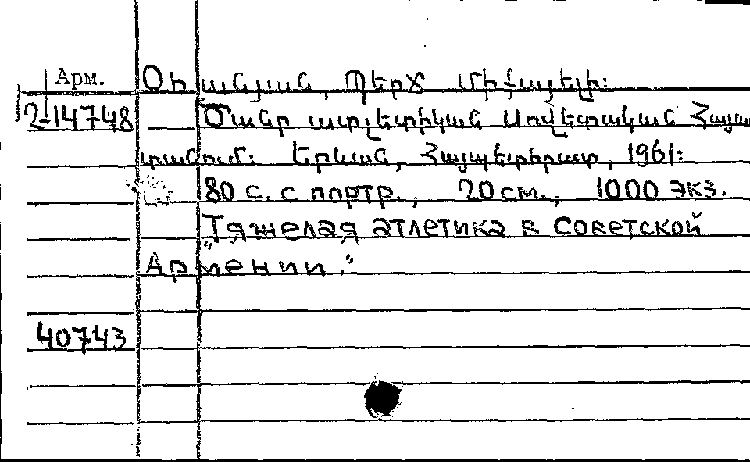 Арм. Օհանյան, Պերճ Միքայելի:
2-14748 Ծանր ատլետիկան Սովետական Հայաս
տանում: Երևան, Հայպետհրատ, 1961:
80 с. с портр., 20 см., 1000 экз.
„Тяжелая атлетика в Советской
Армении.“
40743